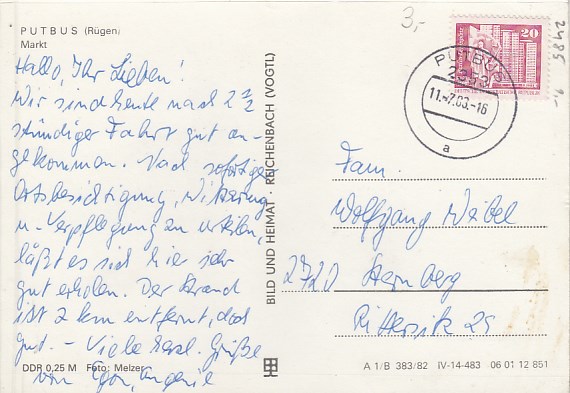 PUTBUS (Rügen)
Markt
Hallo, Ihr Lieben!
Wir sind heute nach 2 1/2
stündiger Fahrt gut an-
gekommen. Nach sofortiger
Ortsbesichtigung, Witterung
u. Verpflegung zu urteilen,
läßt es sich hier sehr
gut erholen. Der Strand
ist 2 km entfernt, doch
gut. - Viele herzl. Grüße
von Egon,
DDR 0,25 M Foto: Melzer
BILD UND HEIMAT · REICHENBACH (VOGTL)
3,-
2485
PUTBUS
2353
11.-7.83.-16
a
20
DEUTSCHE DEMOKRATISCHE REPUBLIK
Fam.
Wolfgang Weibel
2720 Sternberg
25
A 1/B 383/82 IV-14-483 06 01 12 851